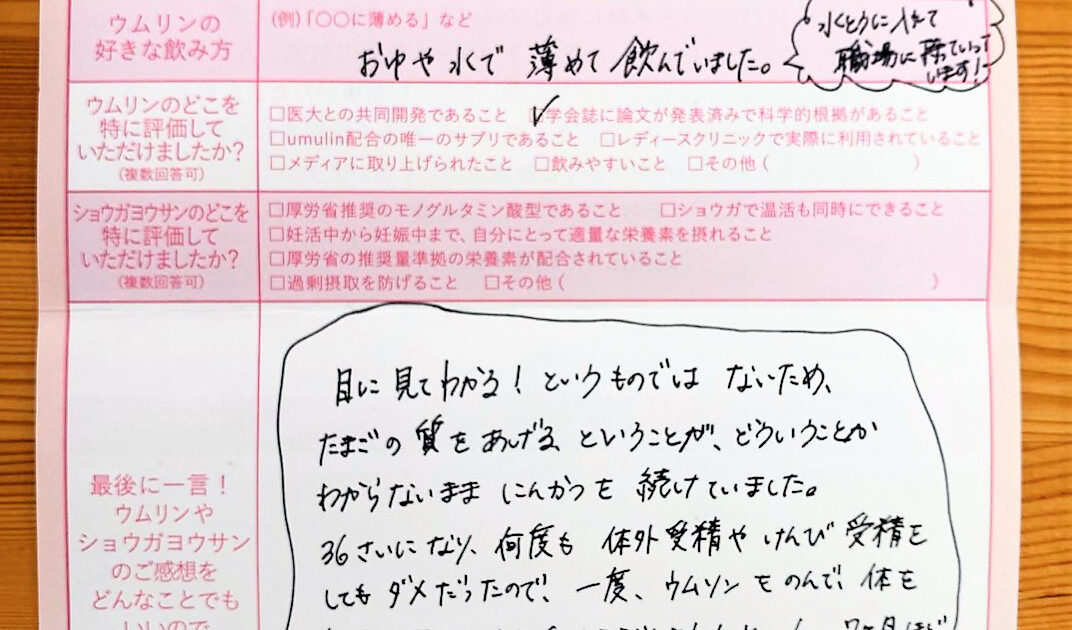 ウムリンの
好きな飲み方
(例)「〇〇に薄める」など
おゆや水で 薄めて 飲んでいました。
水とうに入れて
職場に持っていって
います!
ウムリンのどこを
特に評価して
いただけましたか?
(複数回答可)
□医大との共同開発であること ☑学会誌に論文が発表済みで科学的根拠があること
□umulin配合の唯一のサプリであること □レディースクリニックで実際に利用されていること
□メディアに取り上げられたこと □飲みやすいこと □その他( )
ショウガヨウサンのどこを
特に評価して
いただけましたか?
(複数回答可)
□厚労省推奨のモノグルタミン酸型であること □ショウガで温活も同時にできること
□妊活中から妊娠中まで、自分にとって適量な栄養素を摂れること
□厚労省の推奨量準拠の栄養素が配合されていること
□過剰摂取を防げること □その他( )
最後に一言!
ウムリンや
ショウガヨウサン
のご感想を
どんなことでも
いいので
目に見てわかる!というものでは ないため、
たまごの質をあげる ということが、どういうことか
わからないまま にんかつを 続けていました。
36さいになり、何度も 体外受精や けんび受精を
しても ダメだったので、一度、ウムソンをのんで、体を